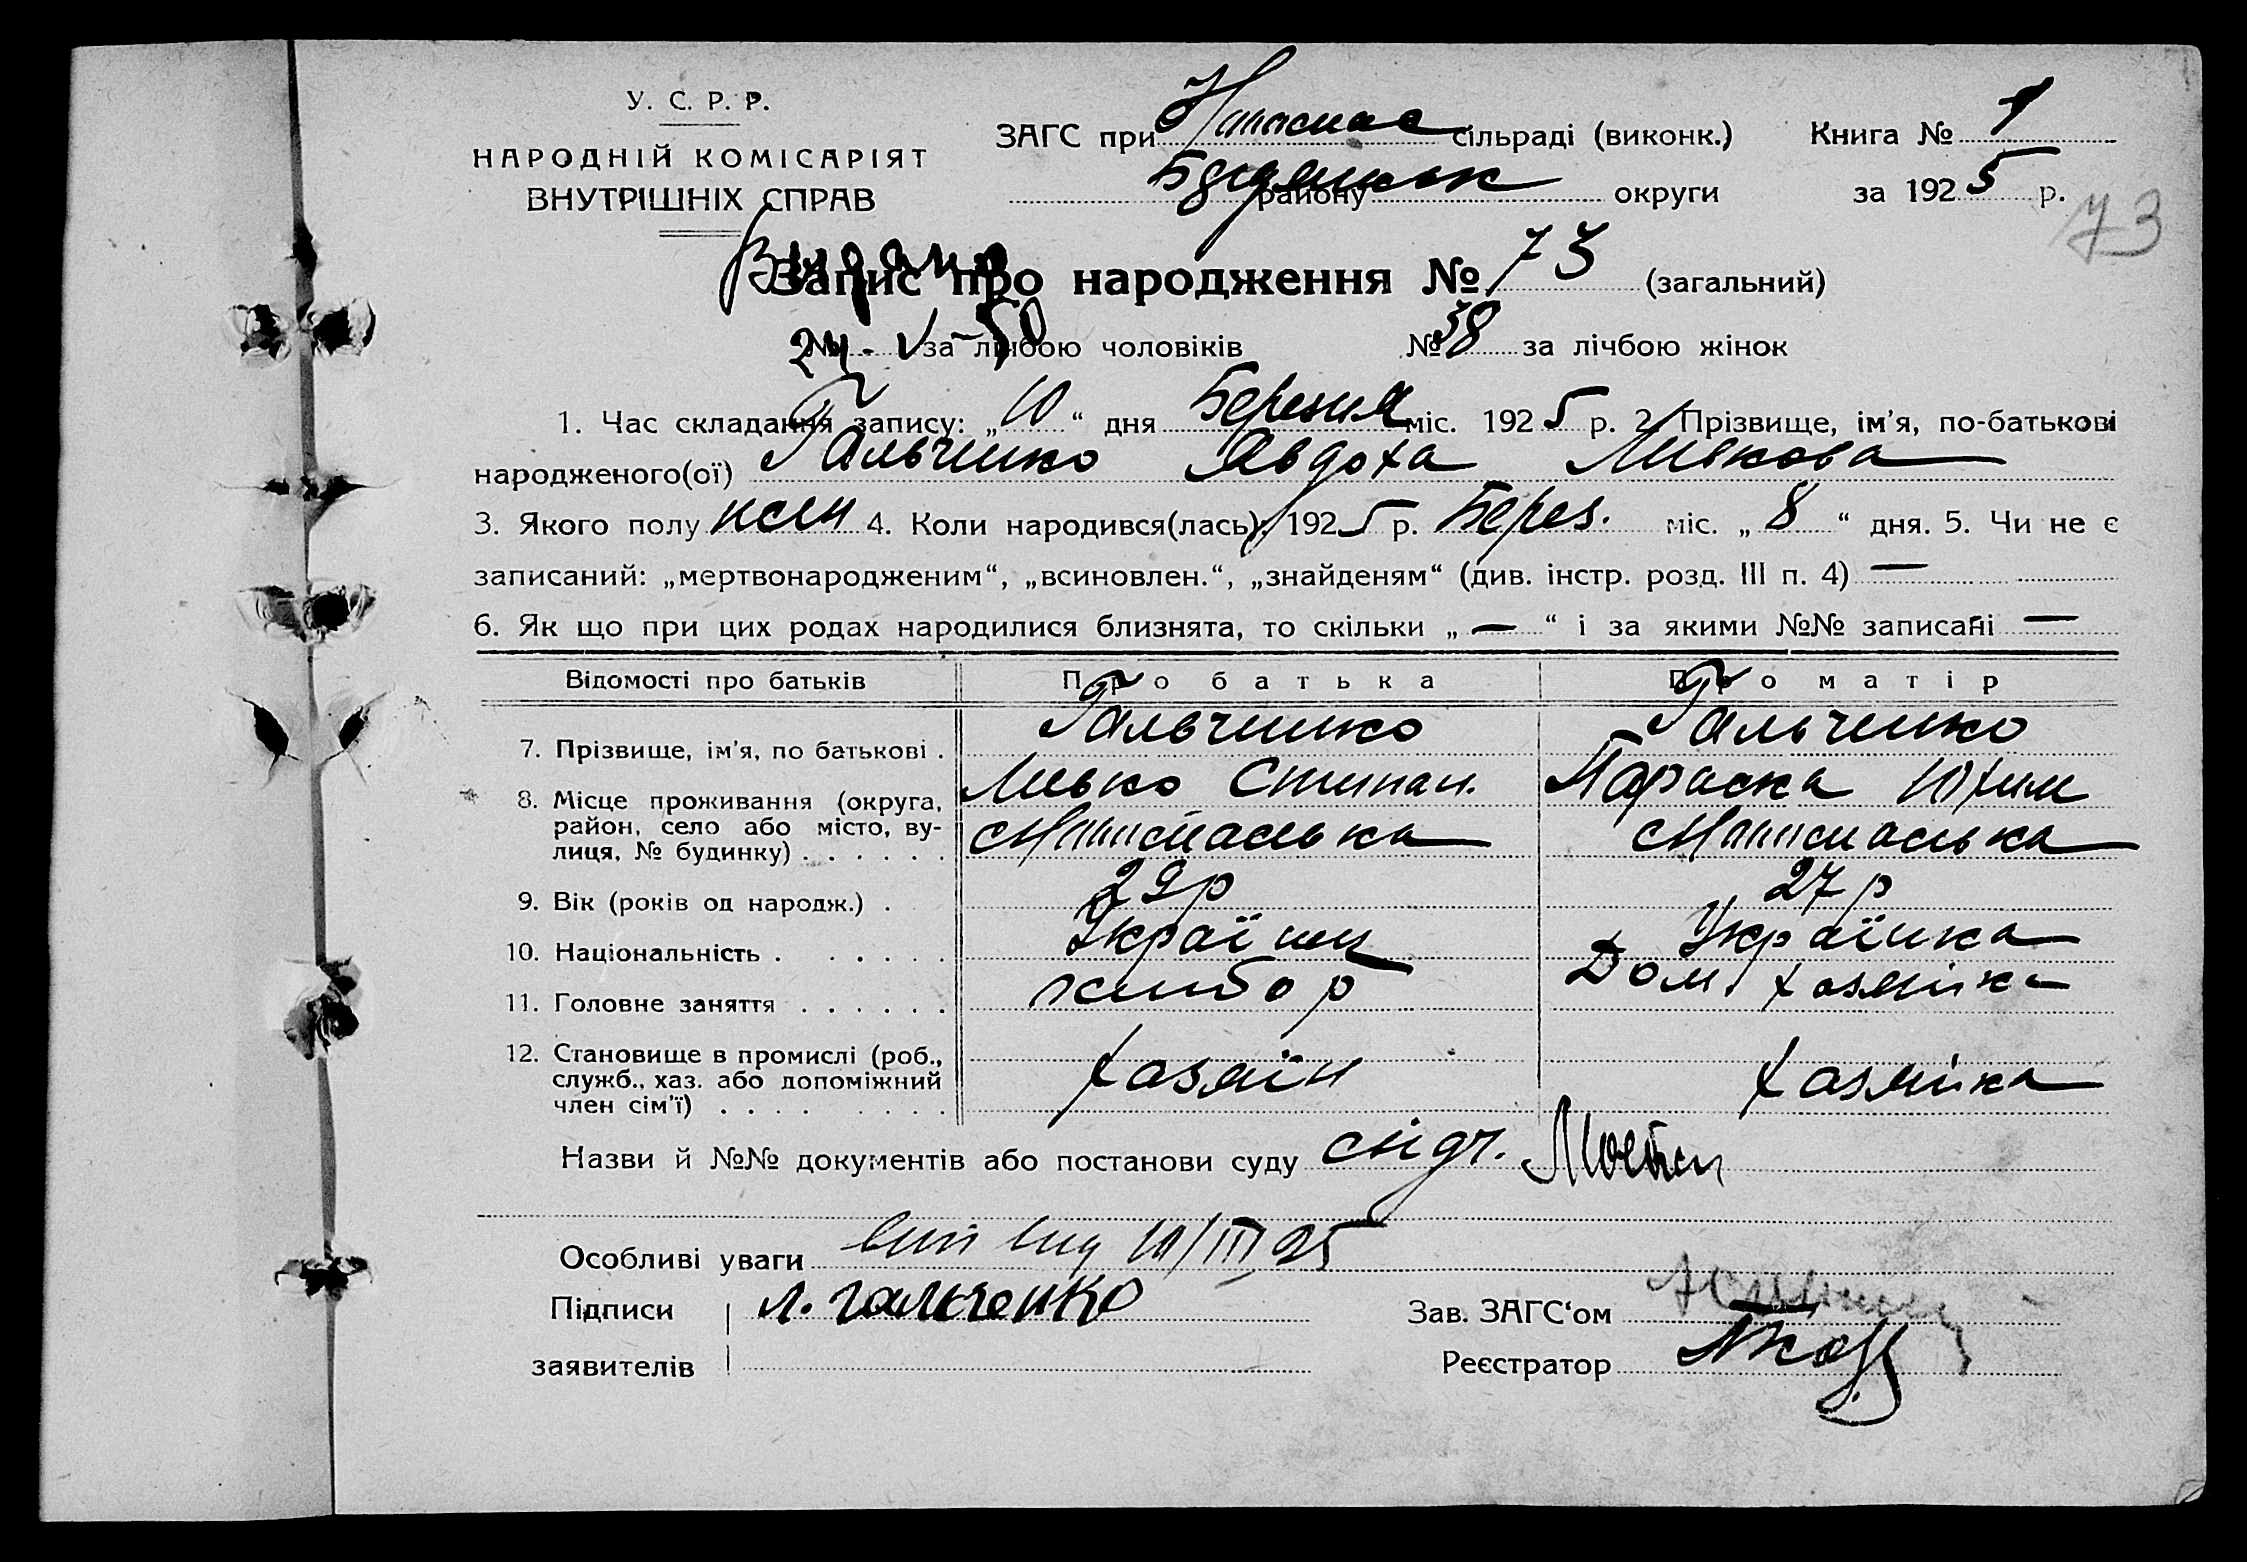 У. С. Р. Р.
НАРОДНІЙ КОМІСАРІЯТ
ВНУТРІШНІХ СПРАВ
ЗАГС при сільраді (виконк.) Книга № 1
району округи за 1925 р.
73
Видано
Запис про народження № 73 (загальний)
24-V-50
№ за лічбою чоловіків № 38 за лічбою жінок
1. Час складання запису: „10“ дня Березня міс. 1925 р. 2. Прізвище, ім'я, по-батькові
народженого(ої) Гальченко Явдоха Левкова
3. Якого полу жен 4. Коли народився(лась): 1925 р. Берез. міс. „8“ дня. 5. Чи не є
записаний: „мертвонародженим“, „всиновлен.“, „знайденям“ (див. інстр. розд. III п. 4) —
6. Як що при цих родах народилися близнята, то скільки „—“ і за якими №№ записані —
Відомості про батьків Про батька Про матір
7. Прізвище, ім'я, по батькові . Гальченко Гальченко
Левко Степан. Параска Юхим
8. Місце проживання (округа,
район, село або місто, вулиця, № будинку) . . . . . .
9. Вік (років од народж.) . 29 р 27 р
10. Національність . . . . . . Українец Українка
11. Головне заняття . . . . . . хлібор Дом. хазяйка
12. Становище в промислі (роб.,
служб., хаз. або допоміжний
член сім'ї) . . . . . . . . хазяїн хазяйка
Назви й №№ документів або постанови суду
Особливі уваги 10/III 25
Підписи Л. Гальченко Зав. ЗАГС‘ом
заявителів Реєстратор